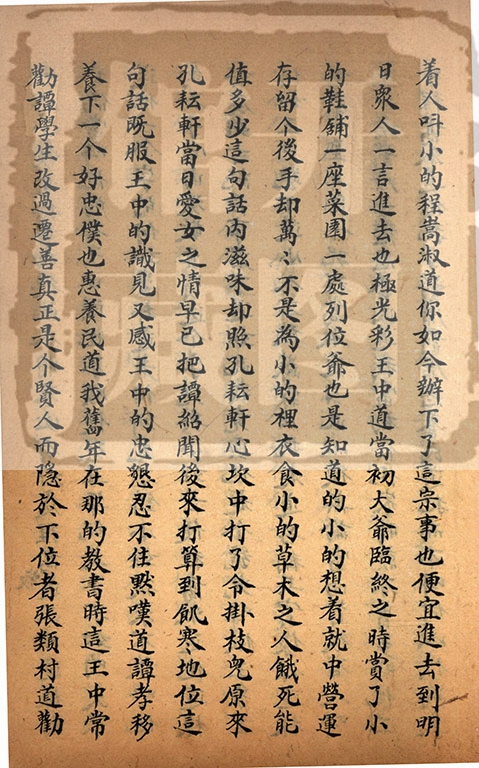 着人叫小的程嵩淑道你如今辦下了這宗事也便宜進去到明
日衆人一言進去也極光彩王中道當初大爺臨終之時賞了小
的鞋鋪一座菜園一處列位爺也是知道的小的想着就中營運
存留个後手却萬〻不是為小的裡衣食小的草木之人餓死能
值多少這句話內滋味却照孔耘軒心坎中打了令掛枝兒原來
孔耘軒當日愛女之情早已把譚紹聞後來打算到飢寒地位這
句話既服王中的識見又感王中的忠懇忍不住黙嘆道譚孝移
養下一个好忠僕也惠養民道我舊年在那的教書時這王中常
勸譚學生改過遷善真正是个賢人而隱於下位者張類村道勸